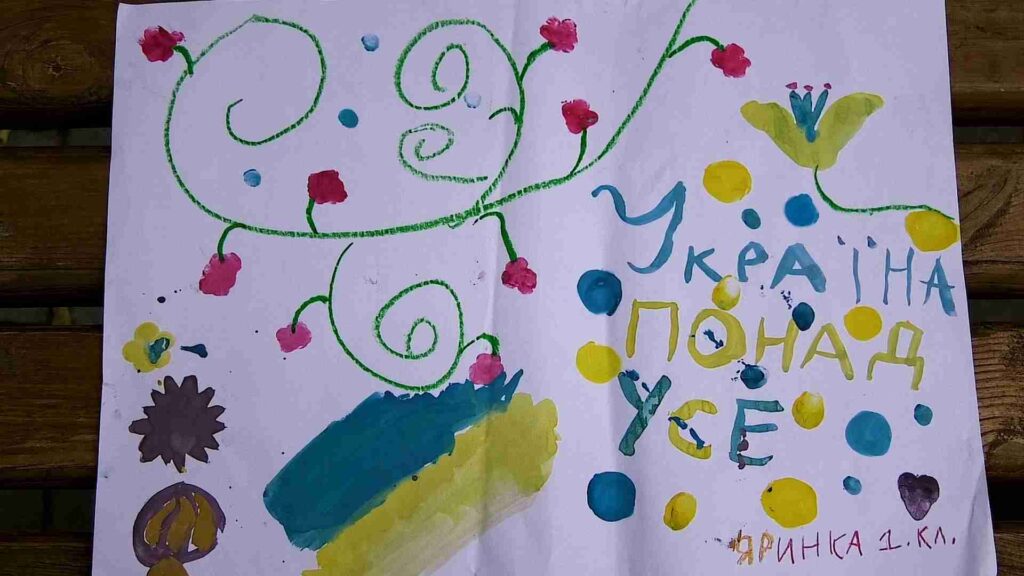 УКРАЇНА
ПОНАД
УСЕ
ЯРИНКА 1. КЛ.